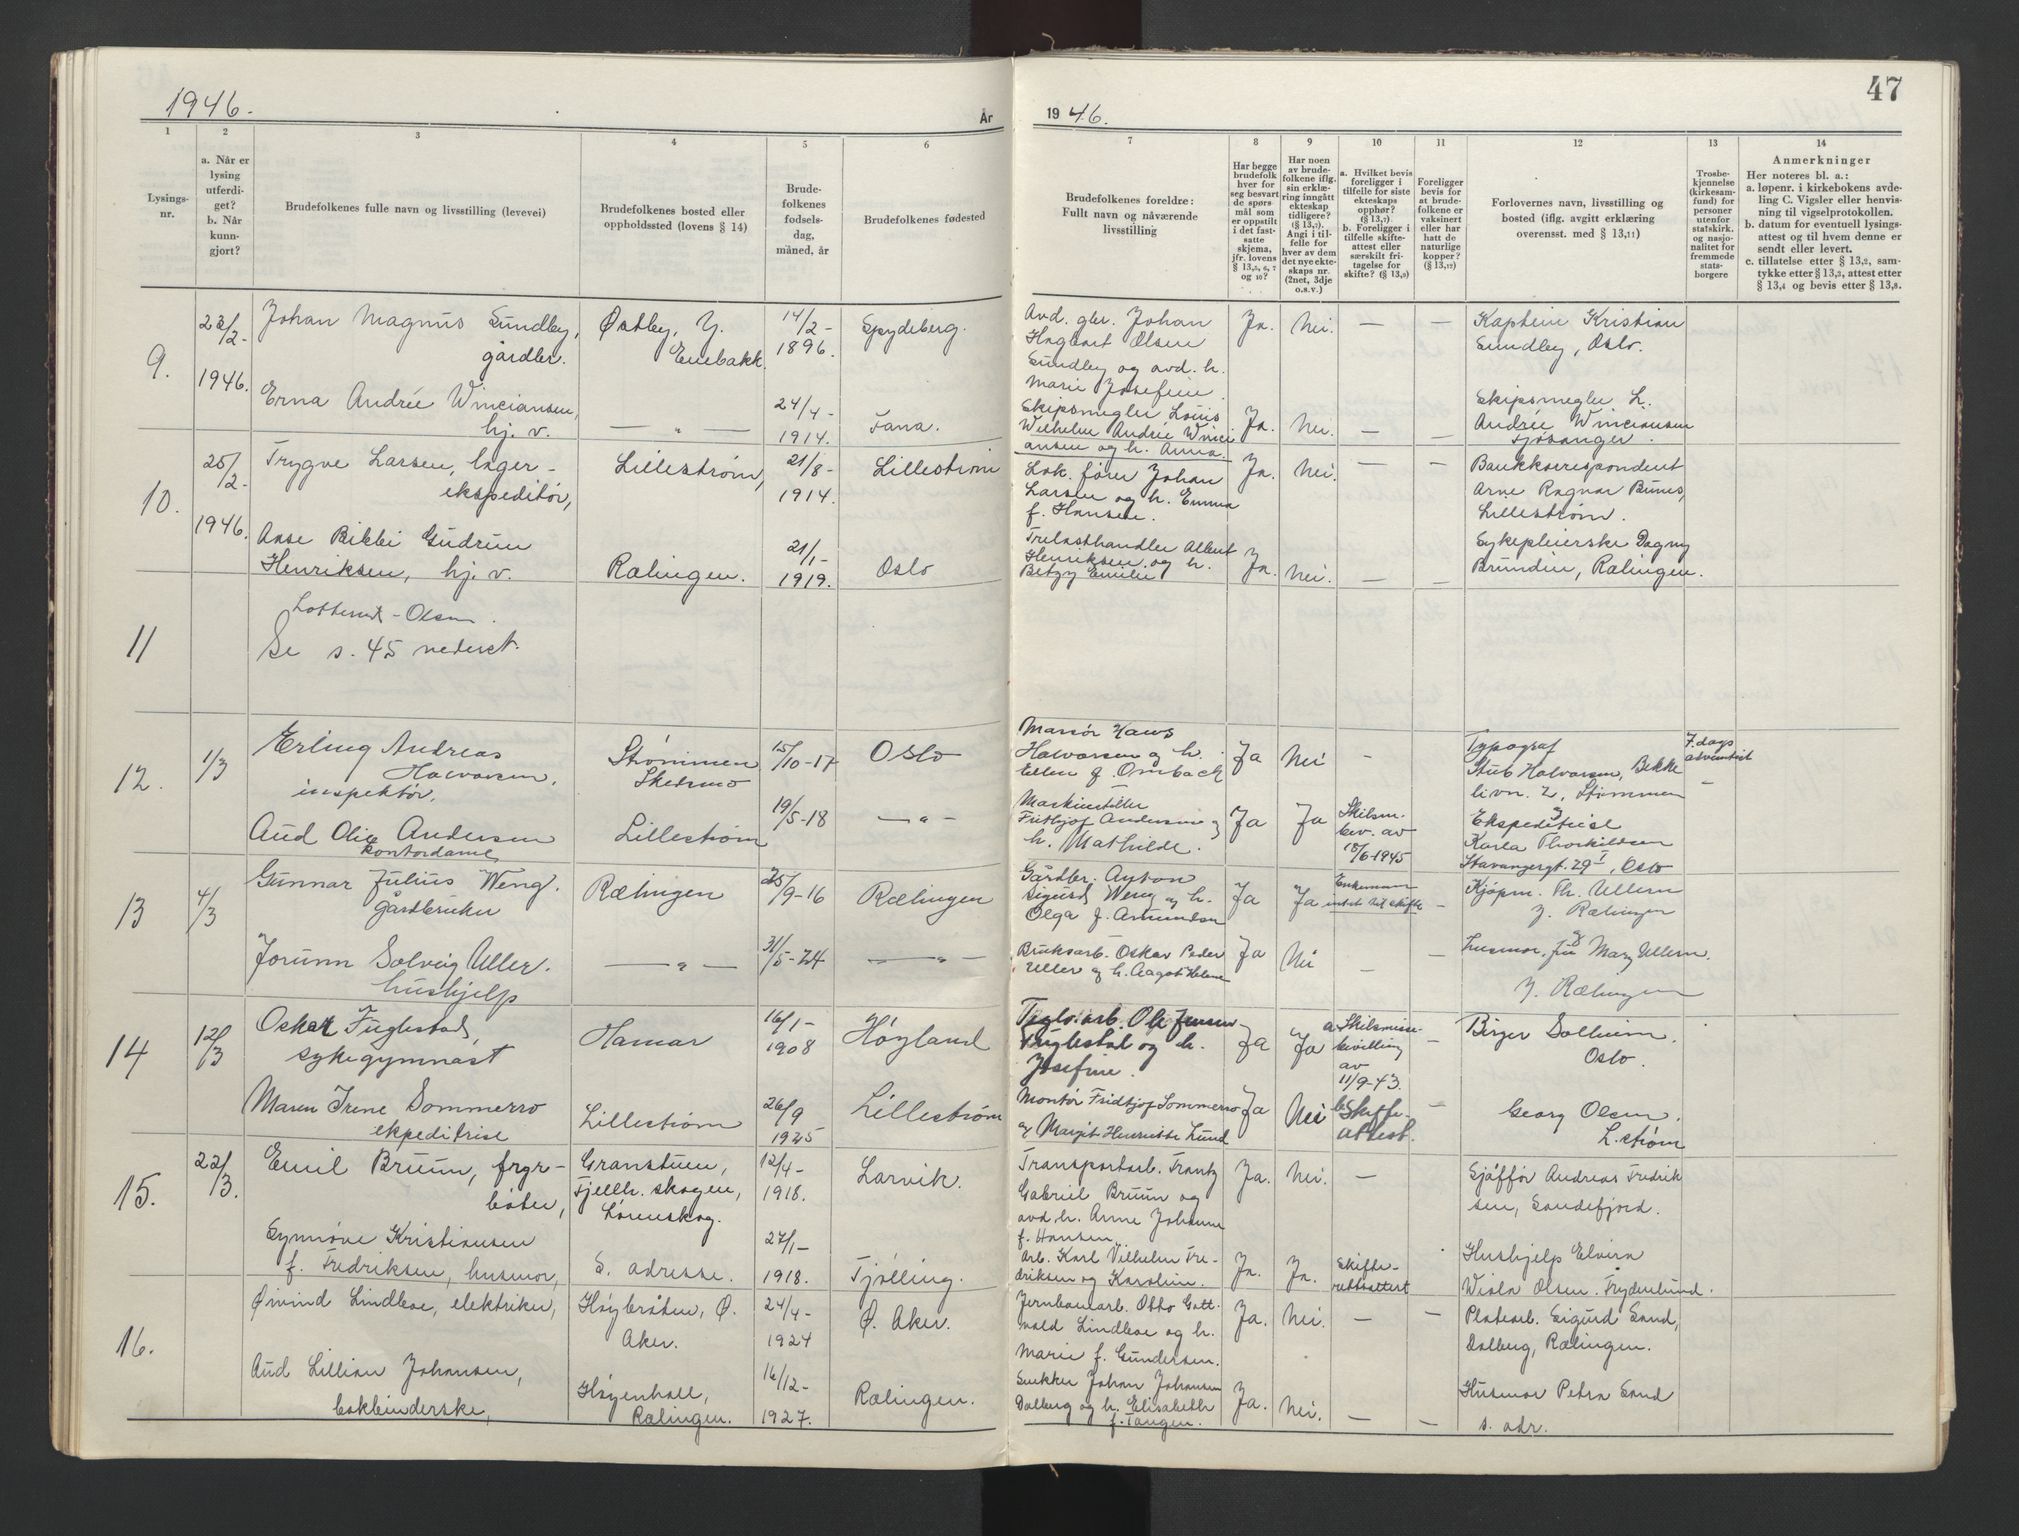 1946.
År
1
2
3
4
5
6
Lysings-
nr.
a. Når er
lysing
utferdi-
get?
b. Når
kunn-
gjort?
Brudefolkenes fulle navn og livsstilling (levevei)
Brudefolkenes bosted eller
oppholdssted (lovens § 14)
Brude-
folkenes
fødsels-
dag,
måned, år
Brudefolkenes fødested
9.
23/2-
1946.
Johan Magnus Sundby,
gårdbr.
Østby, Y.
Enebakk.
14/2-
1896.
Spydeberg.
Erna Andrée Winciansen,
hj. v.
— „ —
24/4-
1914.
Fana.
10.
25/2-
1946.
Trygve Larsen, lager-
ekspeditør,
Lillestrøm,
21/8-
1914.
Lillestrøm
Aase Bibbi Gudrun
Henriksen, hj. v.
Rælingen.
21/1-
1919.
Oslo
11
Lotterud-Olsen.
Se s. 45 nederst.
12.
1/3
Erling Andreas
Halvorsen,
inspektør,
Strømmen
Skedsmo
15/10-17
Oslo
Aud Olie Andersen
kontordame
Lillestrøm
19/5-18
— „ —
13
4/3
Gunnar Julius Weng.
Gårdbruker
Rælingen
25/9-16
Rælingen
Jorunn Solveig Uller.
hushjelp
— „ —
31/5-24
— „ —
14
12/3
Oskar Fuglestad,
sykegymnast
Hamar
16/1-
1908
Høyland
Maren Irene Sommerro
ekpeditrise
Lillestrøm
26/9
1925
Lillestrøm
15.
22/3.
Emil Bruun, frgr-
bøter,
Granstuen,
Fjellh. skogen,
Lørenskog.
12/4-
1918.
Larvik.
Synnøve Kristiansen
f. Fredriksen, husmor,
S. adresse.
27/1-
1918.
Tjølling.
16.
Øivind Lindboe, elektriker,
Høybråten, Ø.
Aker.
24/4-
1924
Ø. Aker.
Aud Lillian Johansen,
bokbinderske,
Høyenhall,
Rælingen.
16/12-
1927.
Rælingen.
47
1946.
7
8
9
10
11
12
13
14
Brudefolkenes foreldre:
Fullt navn og nåværende
livsstilling
Har begge
brudefolk
hver for
seg besvart
de spørs-
mål som
er oppstilt
i det fast-
satte
skjema,
jfr. lovens
§ 13,5, 6, 7
og 10?
Har noen
av brude-
folkene iflg.
sin erklæ-
ring inngått
ekteskap
tidligere?
(§ 13,7).
Angi i til-
felle for
hver av dem
det nye ekte-
skaps nr.
(2net, 3dje
o.s.v.)
a. Hvilket bevis
foreligger i
tilfelle for siste
ekteskaps
opphør?
(§ 13,7)
b. Foreligger i
tilfelle skifte-
attest eller
særskilt fri-
tagelse for
skifte? (§ 13,9)
Foreligger
bevis for
at brude-
folkene er
vaksinert
eller har
hatt de
naturlige
kopper?
(§ 13,12)
Forlovernes navn, livsstilling og
bosted (iflg. avgitt erklæring
overensst. med § 13,11)
Trosbe-
kjennelse
(kirkesam-
fund) for
personer
utenfor
statskirk.
og nasjo-
nalitet for
fremmede
stats-
borgere
Anmerkninger
Her noteres bl. a.:
a. løpenr. i kirkebokens avde-
ling C. Vigsler eller henvis-
ning til vigselprotokollen.
b. datum for eventuell lysings-
attest og til hvem denne er
sendt eller levert.
c. tillatelse etter § 13,2, sam-
tykke etter § 13,3, attest etter
§ 13,4 og bevis etter § 13,8.
Avd. gbr. Johan
Hagbart Olsen
Sundby og avd. h.
Marie Josefine.
Ja.
Nei.
—
—
Kaptein Kristian
Sundby, Oslo.
Skipsmegler Louis
Wilhelm Andrée Winci
ansen og h. Anna.
Ja.
Nei.
—
—
Skipsmegler L.
Andrée Winciansen
Fjøsanger.
Lok. fører Johan
Larsen og h. Emma
f. Hansen.
Ja.
Nei.
—
—
Bankkorrespondent
Arne Ragnar Bunes,
Lillestrøm.
Trelasthandler Albert
Henriksen og h.
Betzy Emilie
Ja.
Nei.
—
—
Sykepleierske Dagny
Brundin, Rælingen.
Massør Hans
Halvorsen og h.
Ellen f. Ombach
Ja
Nei
—
Typograf
Stub Halvorsen, Bekke
livn. 2, Strømmen
7. dags
adventist
—
Maskinstiller
Frithjof Andersen og
h. Mathilde.
Ja
Ja
Skilsm.
bev. av
18/6-1945
Ekspeditrise
Karla Thorkildsen
Stavangergt. 29 I, Oslo
Gårdbr. Anton
Sigurd Weng og h.
Olga f. Amundsen
Ja
Ja
Enkemann
intet til skifte
—
Kjøpm. Th. Ullern
Y. Rælingen
Bruksarb. Oskar Peder
Uller og h. Aagot Helene
Ja
Nei
—
—
husmor, fru Mary Ullern.
Y. Rælingen
Teglv.arb. Ole Jensen
Fuglestad og h.
Josefine.
Ja
Ja
a. Skilsmisse-
bevilling
av
11/9-43.
—
Birger Solheim.
Oslo.
Montør Fridtjof Sommerro
og Margit Henriette Lund
Ja
Nei
b. Skifte-
attest.
—
Georg Olsen.
L.strøm
Transportarb. Frantz
Gabriel Bruun og
avd. h. Anne Johanne
f. Hansen
Ja.
Nei.
—
Sjåfför Andreas Fredrik
sen, Sandefjord.
Arb. Karl Vilhelm Fre-
driksen og Karoline.
Ja.
Ja.
Skifte-
rettsattest
Hushjelp Elvira
Wiola Olsen. Frydenlund.
Jernbanearb. Otto Gott-
vald Lindboe og h.
Marie f. Gundersen.
Ja.
Nei.
—
—
Platearb. Sigurd Sand,
Dalberg, Rælingen.
Snekker Johan Johansen
Dalberg og h. Elisabeth
f. Tangen.
Ja.
Nei.
—
—
Husmor Petra Sand
s. adr.